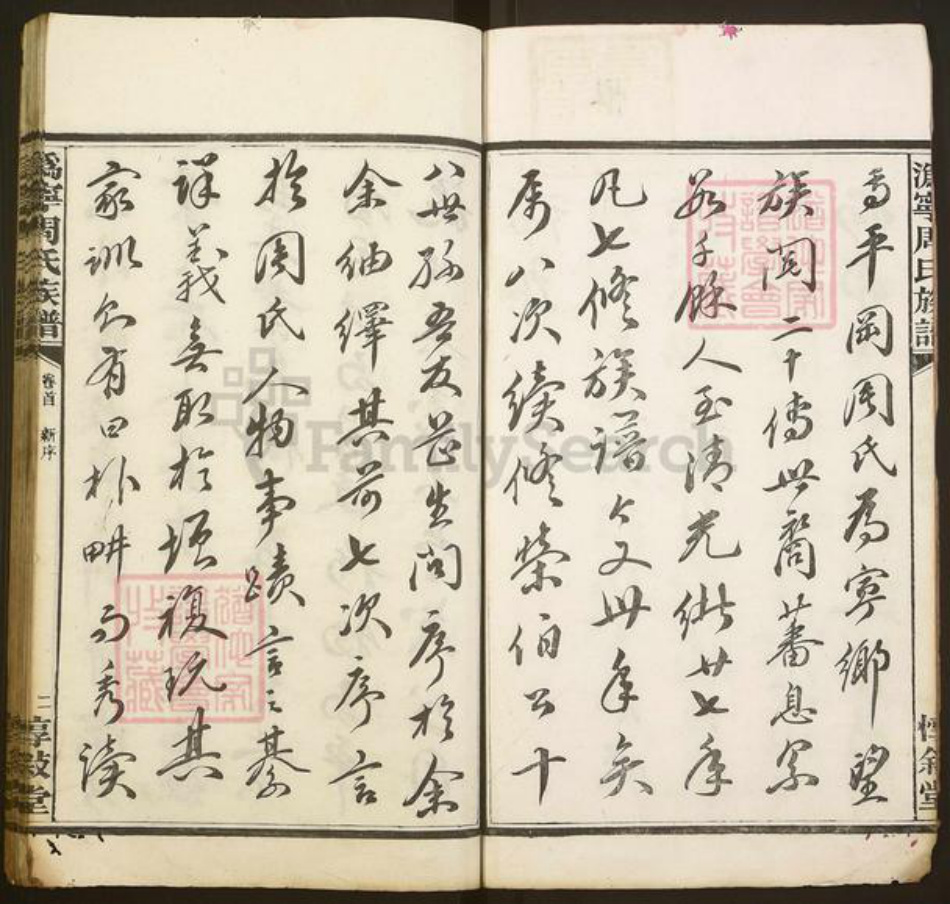 溈寧周氏族譜
惇敍堂
高平岡周氏為寧鄉望
族閱二十傳世裔蕃息累
若千餘人至清光緒廿七年
凡七修族譜今又卅年矣
屬八次續修榮伯公十
八世孫吾友芷生問序於余
余紬繹其前七次序言
於周氏人物事蹟言之綦
詳義無取於項複玩其
家訓介有曰朴耕而秀讀
溈寧周氏族譜
卷首 新序
二
惇敍堂
FamilySearch